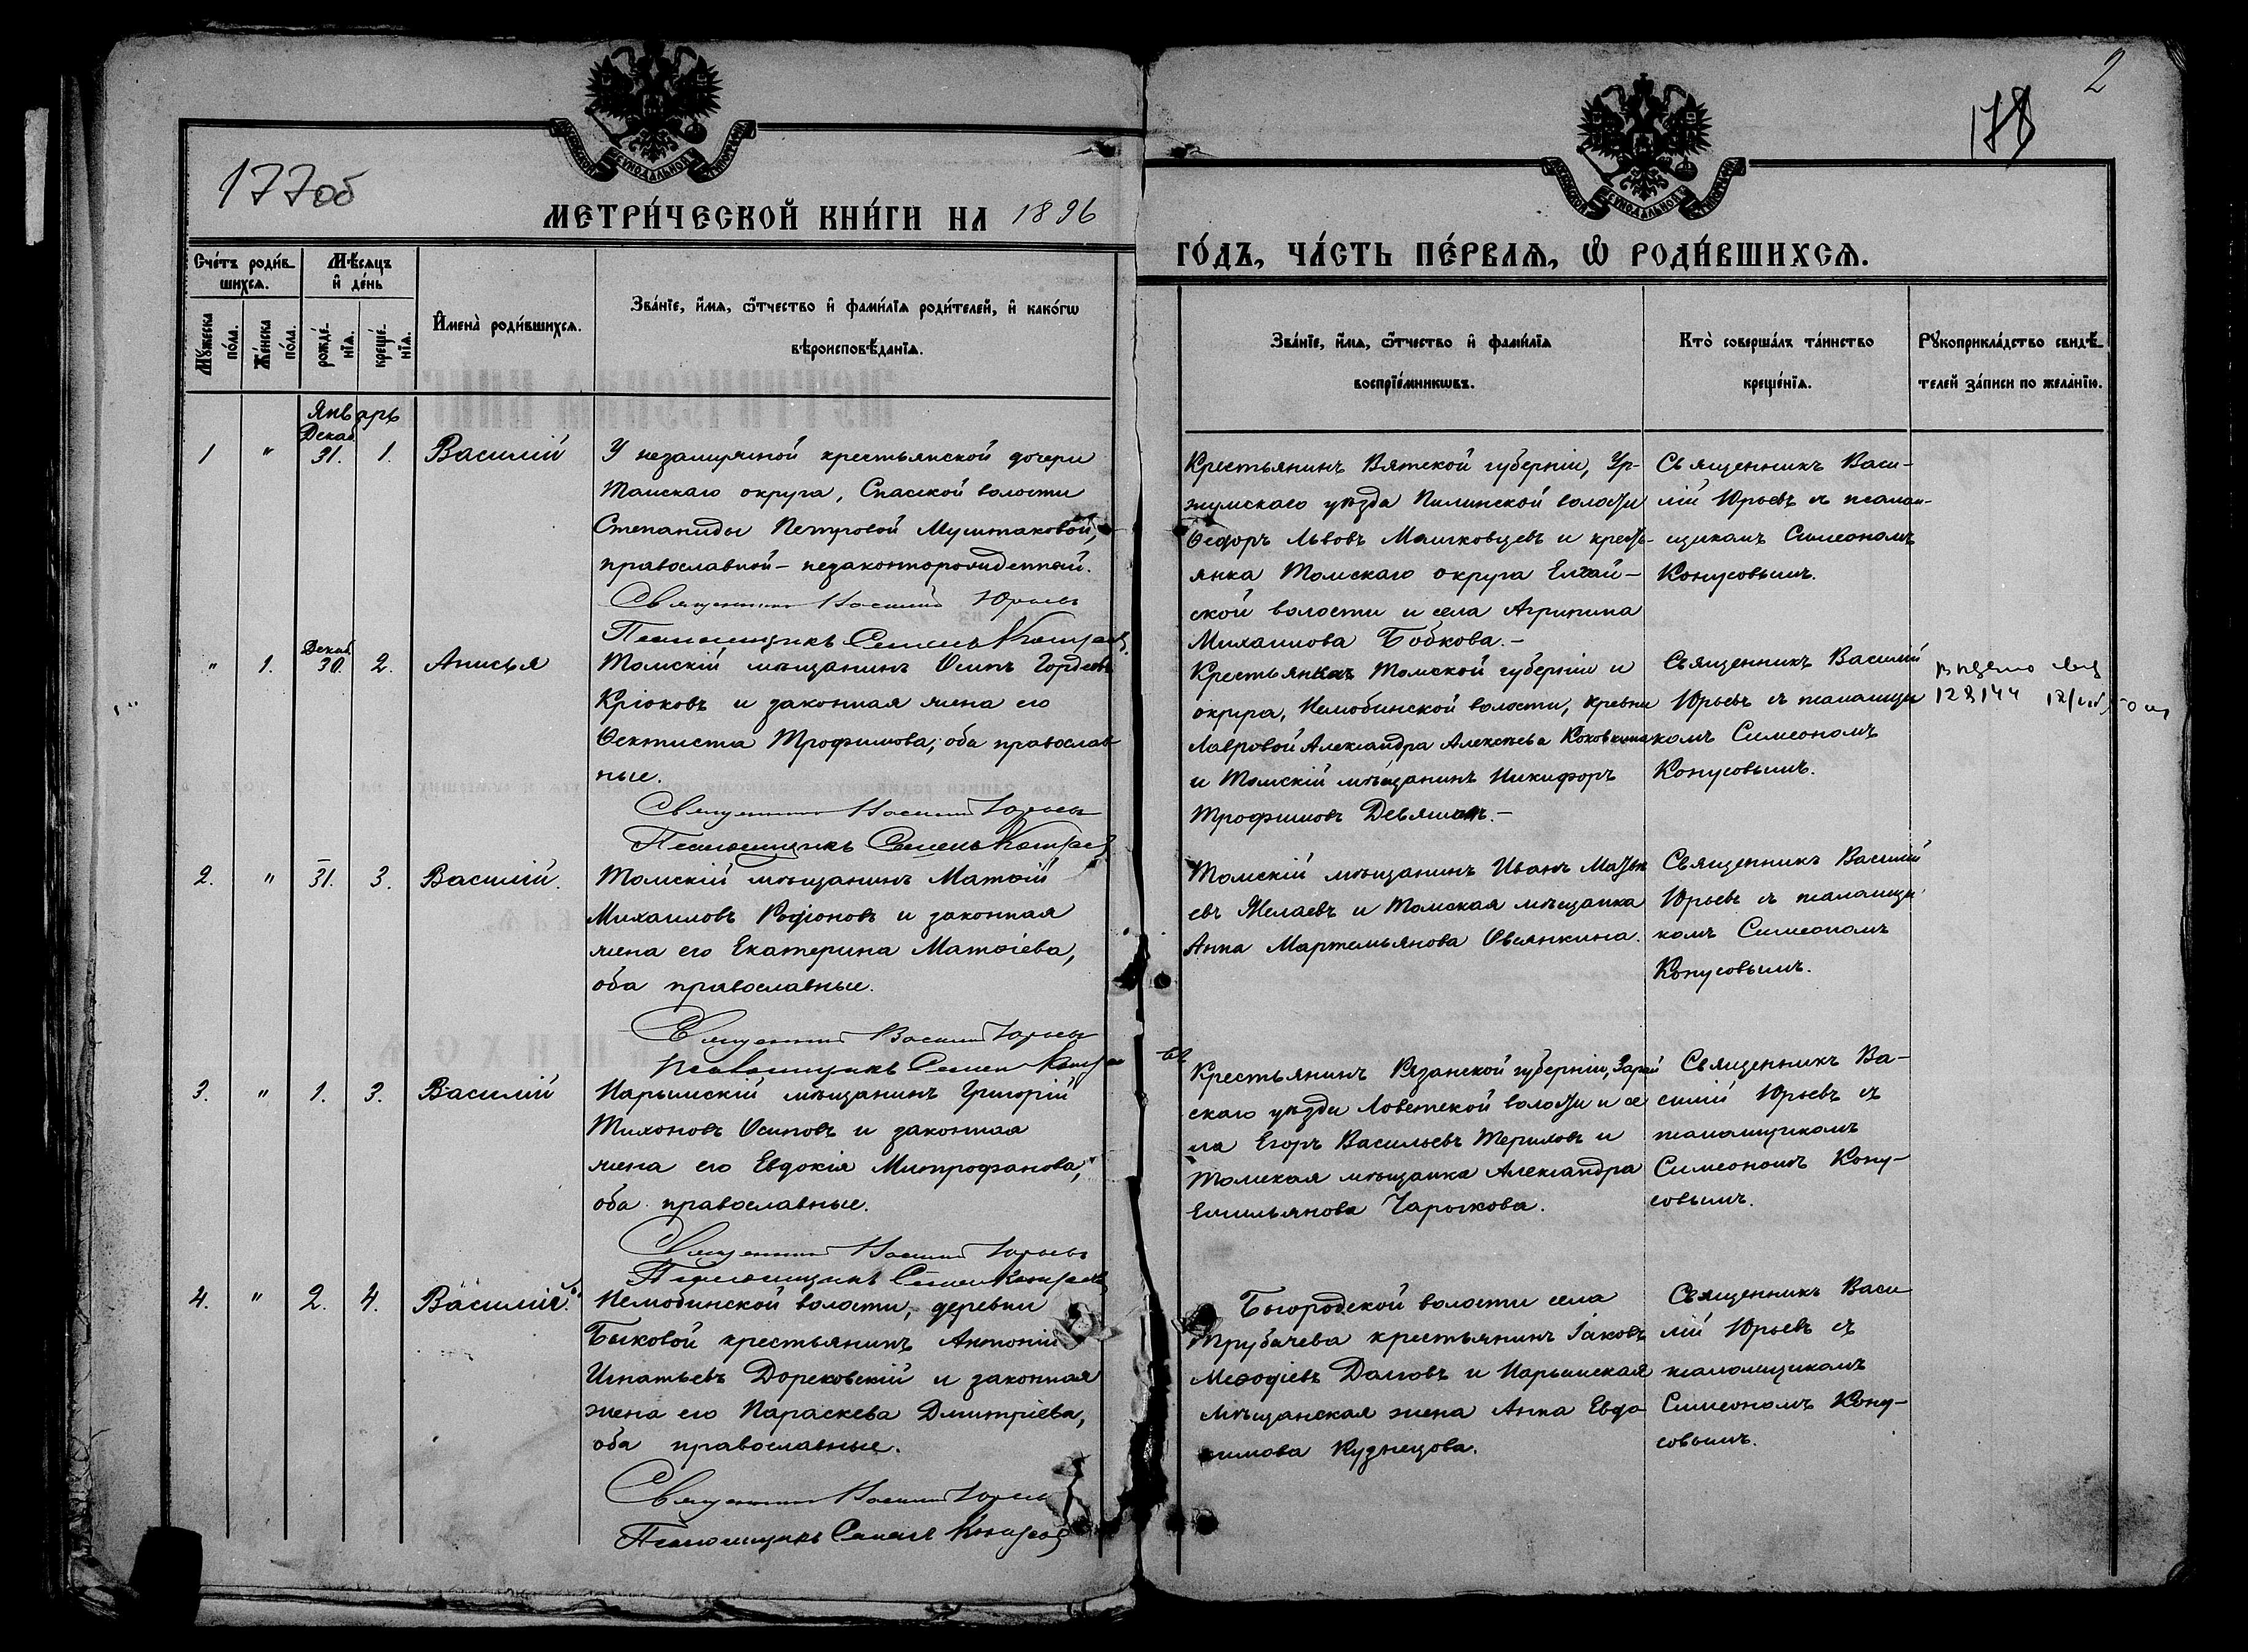 2
178
177об
МЕТРИ́ЧЕСКОЙ КНИ́ГИ НА 1896
ГО́ДЪ, ЧА́СТЬ ПЕ́РВАѦ, Ѿ РОДИ́ВШИХСѦ.
Сче́тъ роди́в-
шихсѧ.
Мꙋ́жеска
по́ла.
Же́нска
по́ла.
Мѣ́сѧцъ
и҆ де́нь
рожде́-
нїѧ.
креще́-
нїѧ.
И҆мена̀ роди́вшихсѧ.
Зва́нїе, и҆́мѧ, ѻ҆́тчество и҆ фами́лїѧ роди́телей, и҆ како́гѡ
вѣроисповѣ́данїѧ.
Зва́нїе, и҆́мѧ, ѻ҆́тчество и҆ фами́лїѧ
воспрїе́мникѡвъ.
Кто̀ соверша́лъ та́инство
креще́нїѧ.
Рꙋкоприкла́дство свидѣ́-
телей за́писи по жела́нїю.
Январь
Декаб
1 " 31. 1. Василій
У незамужной крестьянской дочери
Томскаго округа, Спасской волости
Степаниды Петровой Муштаковой,
православной - незаконнорожденной.
Священникъ Василій Юрьевъ
Псаломщикъ Семенъ Конусовъ
Крестьянинъ Вятской губерніи, Ур-
жумскаго уѣзда Пилинской волости
Ѳедоръ Львовъ Машковцевъ и кресть-
янка Томскаго округа Елгай-
ской волости и села Агрипина
Михаилова Бобкова. -
Священникъ Васи-
лій Юрьевъ съ псалом-
щикомъ Симеономъ
Конусовымъ.
Декаб
" 1. 30. 2. Анисья
Томскій мѣщанинъ Осипъ Гордеевъ
Крюковъ и законная жена его
Ѳеоктиста Трофимова; оба православ-
ные.
Священникъ Василій Юрьевъ
Псаломщикъ Семенъ Конусовъ
Крестьянка Томской губерніи и
округа, Нелюбинской волости, деревни
Лавровой Александра Алексѣева
и Томскій мѣщанинъ Никифоръ
Трофимовъ
Священникъ Василій
Юрьевъ съ псаломщи
комъ Симеономъ
Конусовымъ.
128144
2. " 31. 3. Василій.
Томскій мѣщанинъ Матѳій
Михаиловъ Родіоновъ и законная
жена его Екатерина Матѳіева,
оба православные.
Священникъ Василій Юрьевъ
Псаломщикъ Семенъ Конусовъ
Томскій мѣщанинъ Иванъ Матѳе
евъ Желаевъ и Томская мѣщанка
Анна Мартемьянова Овсянкина.
Священникъ Василій
Юрьевъ съ псаломщи
комъ Симеономъ
Конусовымъ.
3. " 1. 3. Василій
Нарымскій мѣщанинъ Григорій
Тихоновъ Осиповъ и законная
жена его Евдокія Митрофанова,
оба православные.
Священникъ Василій Юрьевъ
Псаломщикъ Семенъ Конусовъ
Крестьянинъ Рязанской губерніи, Зарай
скаго уѣзда Ловетской волости и се
ла Егоръ Васильевъ Териловъ и
Томская мѣщанка Александра
Емильянова Чарочкова.
Священникъ Ва-
силій Юрьевъ съ
псаломщикомъ
Симеономъ Кону-
совымъ.
4. " 2. 4. Василій.
Нелюбинской волости, деревни
Быковой крестьянинъ Антоній
Игнатьевъ Дорековскій и законная
жена его Параскева Дмитріева,
оба православные.
Священникъ Василій Юрьевъ
Псаломщикъ Семенъ Конусовъ
Богородской волости села
Трубачева крестьянинъ Іаковъ
Меѳодіевъ Долговъ и Нарымская
мѣщанская жена Анна Евдо
кимова Кузнецова.
Священникъ Васи
лій Юрьевъ съ
псаломщикомъ
Симеономъ Кону-
совымъ.